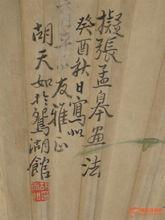 擬張孟皋畫法
癸酉秋日寫似
友雅正
胡天如於鴛湖館